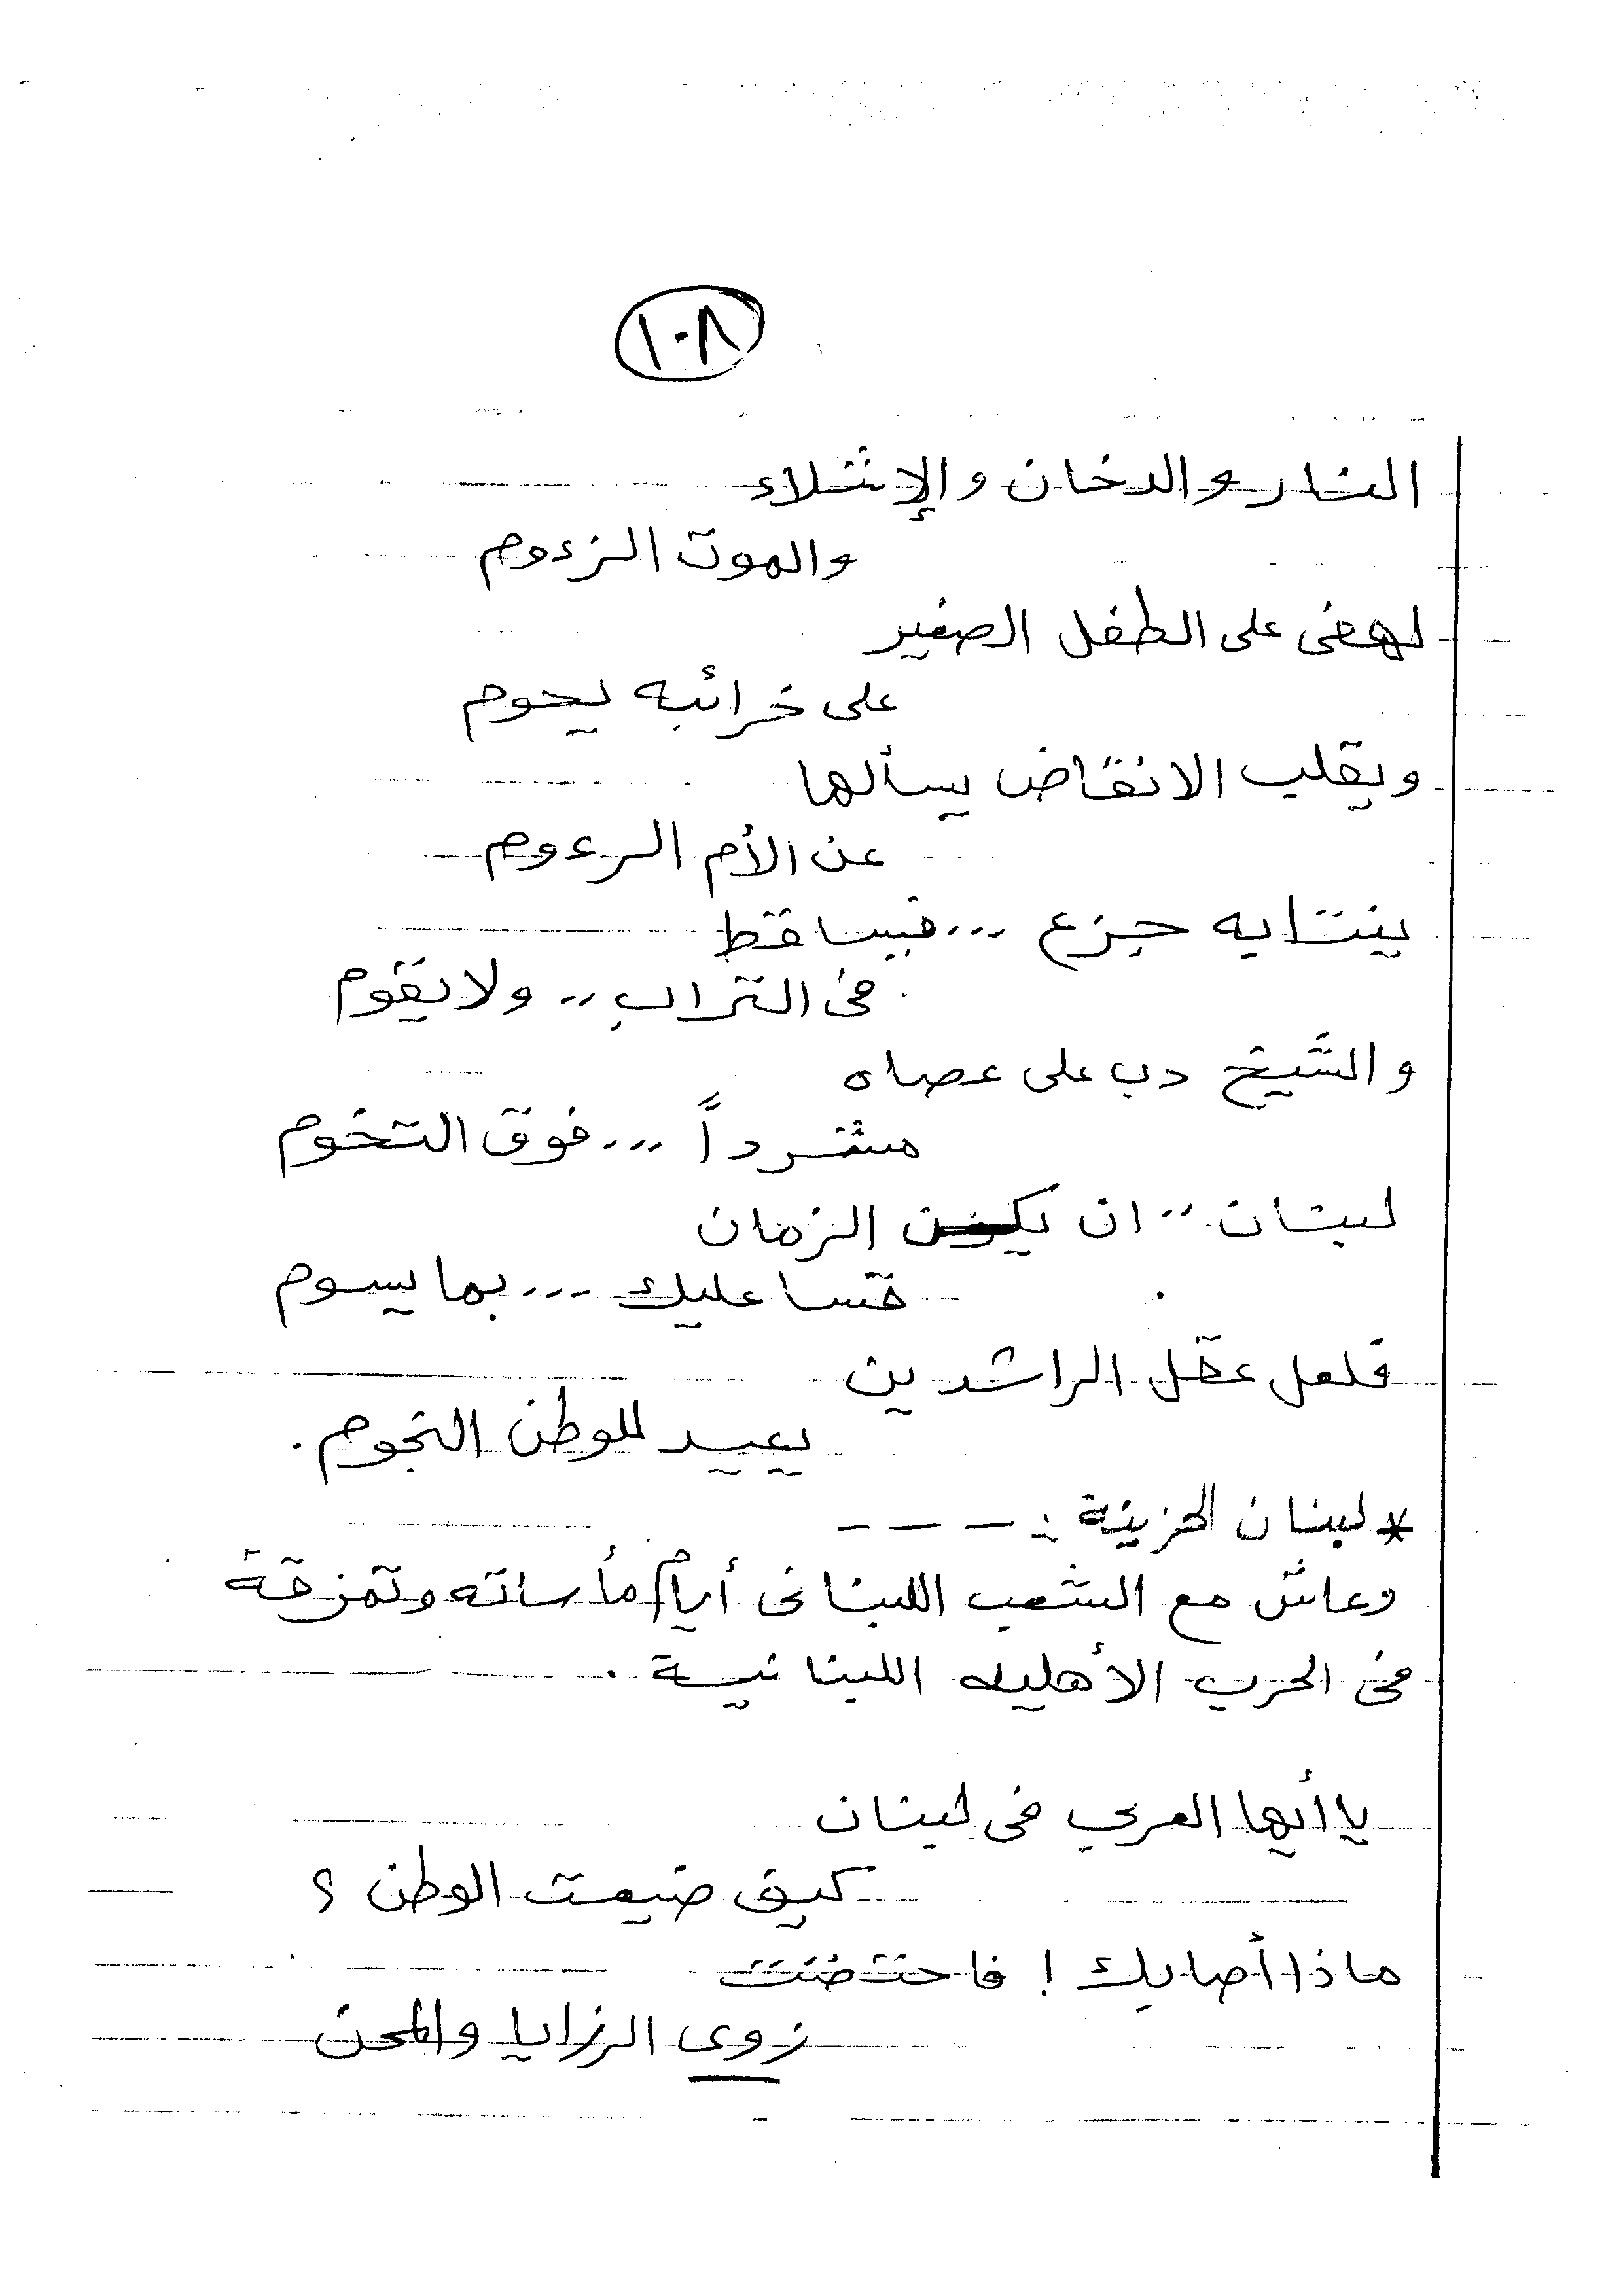 ١٠٨
النار والدخان والإشلاء
والموت الزءوم
لهفى على الطفل الصغير
على خرائبه يحوم
ويقلب الانقاض يسألها
عن الأم الرءوم
ينتابه جزع ... فيساقط
فى التراب .. ولا يقوم
والشيخ دب على عصاه
مشرداً ... فوق التخوم
لبنان .. ان يكن الزمان
قسا عليك ... بما يسوم
فلعل عقل الراشدين
يعيد للوطن النجوم .
* لبنان الحزينة : - - - -
وعاش مع الشعب اللبنانى أيام مأساته وتمزقة
فى الحرب الأهليه اللبنانية .
يا أيها العربي فى لبنان
كيف ضيعت الوطن ؟
ماذا أصابك ! فاحتضنت
زوى الرزايا والمحن